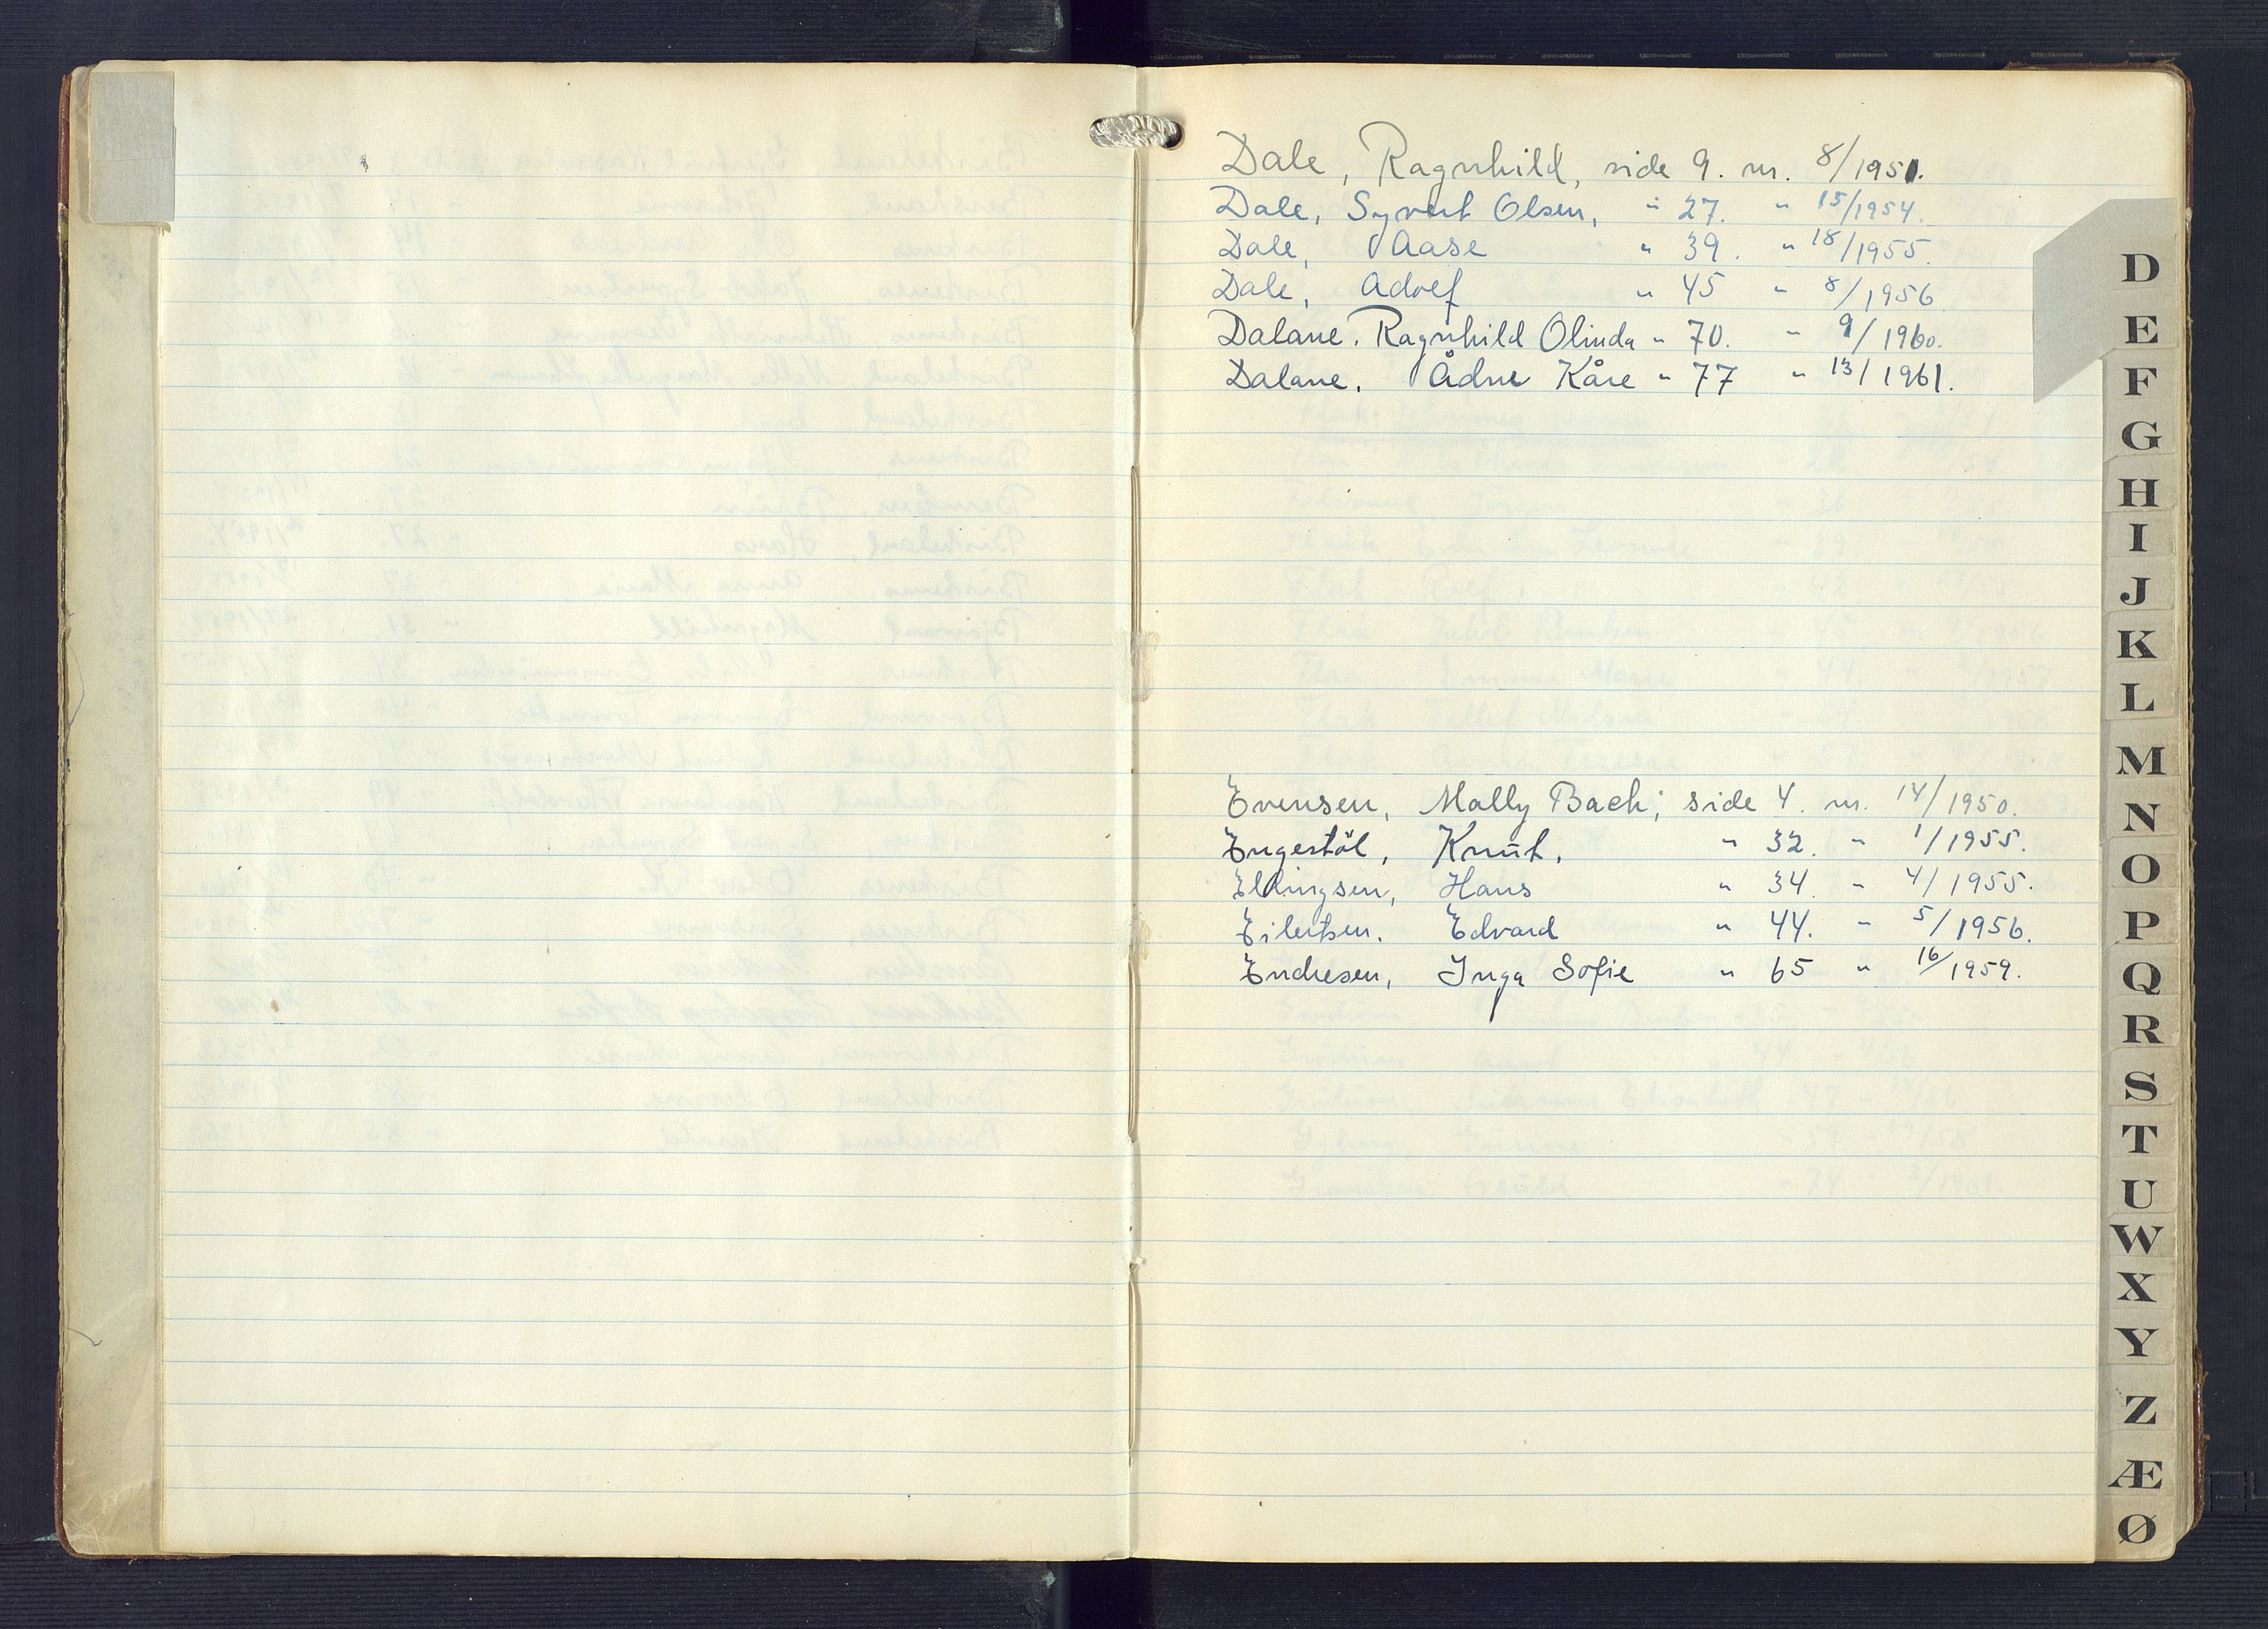 Dale, Ragnhild, side 9. nr. 8/1951.
Dale, Syvert Olsen, " 27. " 15/1954.
Dale, Aase " 39. " 18/1955.
Dale, Adolf " 45 " 8/1956
Dalane. Ragnhild Olinda " 70. " 9/1960.
Dalane. Ådne Kåre " 77 " 13/1961.
Evensen, Mally Bach; side 4. nr. 14/1950.
Engestöl, Knut. " 32. " 1/1955.
Ellingsen, Hans " 34. " 4/1955.
Eilertsen. Edvard " 44. " 5/1956.
Endresen, Inga Sofie " 65 " 16/1959.
D
E
F
G
H
I
J
K
L
M
N
O
P
Q
R
S
T
U
W
X
Y
Z
Æ
Ø